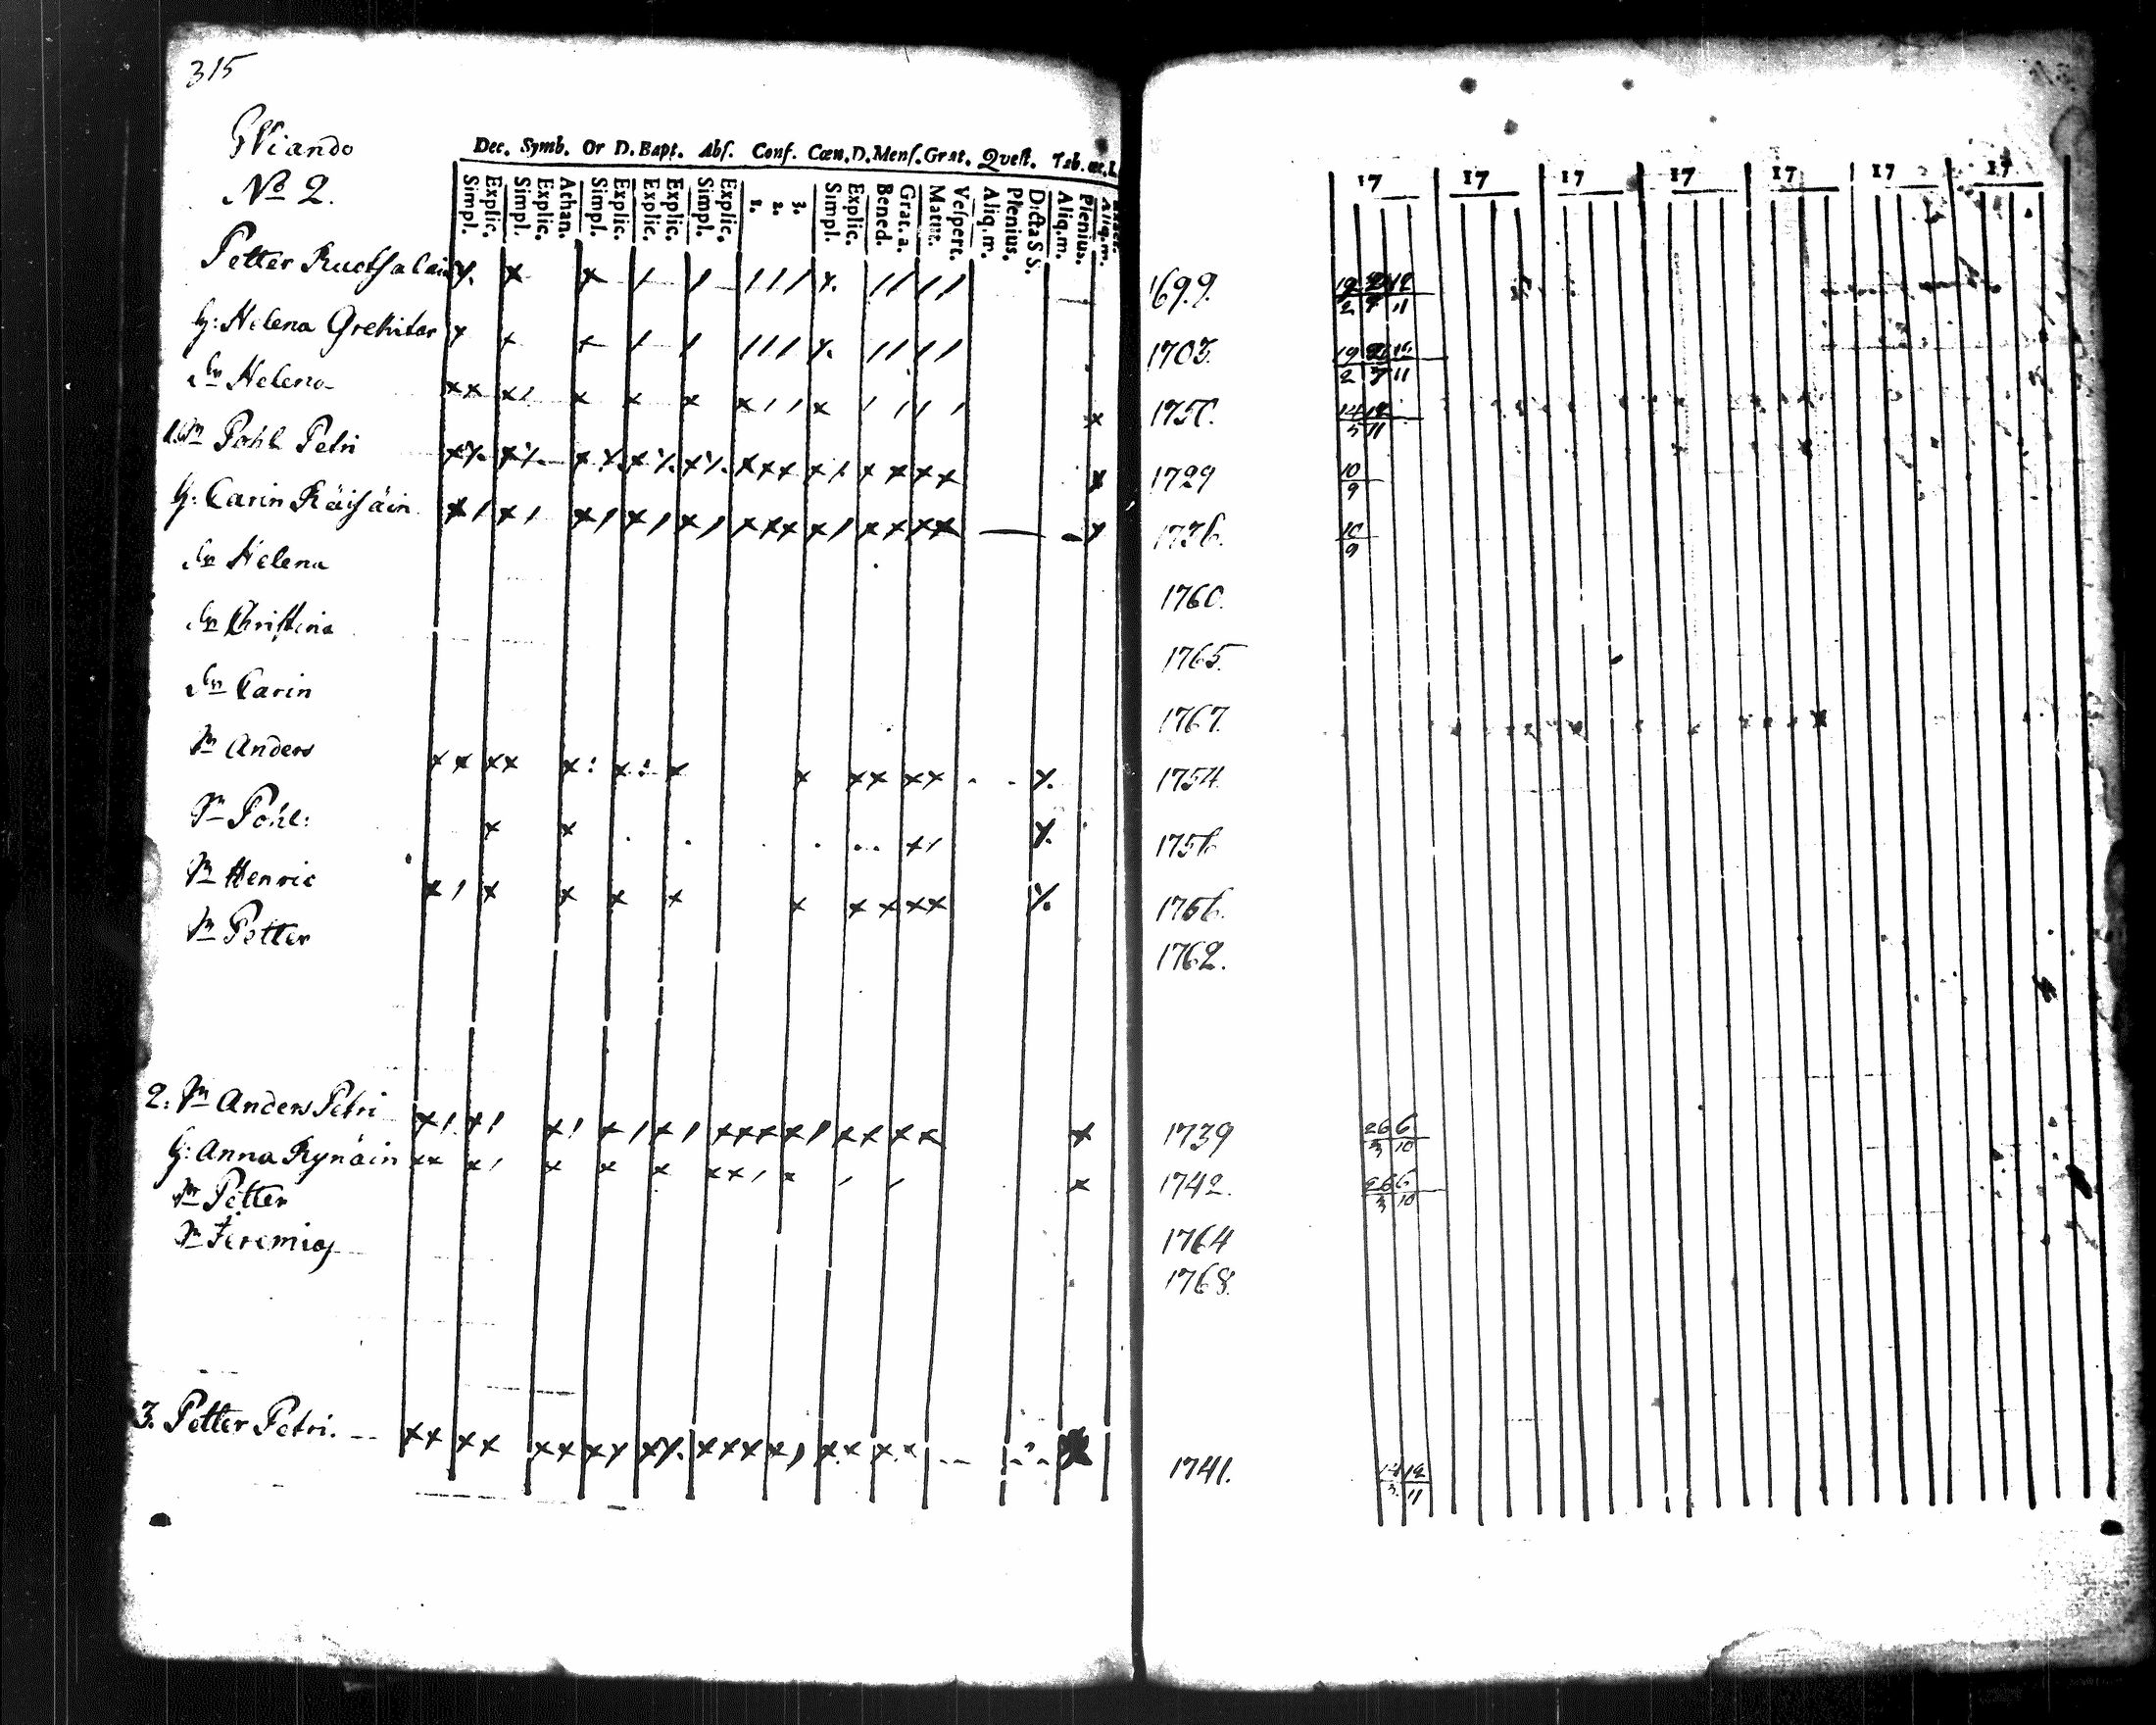 315
Wiando
No 2.
Dec. Symb. Or D. Bapt. Abs. Conf. Cœn. D. Mens. Grat. Quest. Tab. œc.
Simpl. Explic. Simpl. Explic. Athan. Simpl. Explic. Explic. Explic. Simpl. Explic. 1. 2. 3. Simpl. Explic. Bened. Grat. a. Matut. Vespert. Aliq. m. Plenius. Dicta S S. Aliq. m. Plenius. Aliq. m.
17 17 17 17 17 17 17
Petter Ruotsalain 1699.
H: Helena Grekitar 1703.
Dr Helena 1750.
1. Sn Pohl Petri 1729 10/9
H: Carin Räisäin 1736. 10/9
Dr Helena 1760.
Dr Christina 1765.
Dr Carin 1767.
Sn Anders 1754.
Sn Pohl: 1756
Sn Henric 1756.
Sn Petter 1762.
2: Sn Anders Petri 1739 26/3 6/10
H: Anna Rynäin 1742. 26/3 6/10
Sn Petter 1764
Sn Jeremias 1768.
3. Petter Petri. 1741. 14/3 12/11